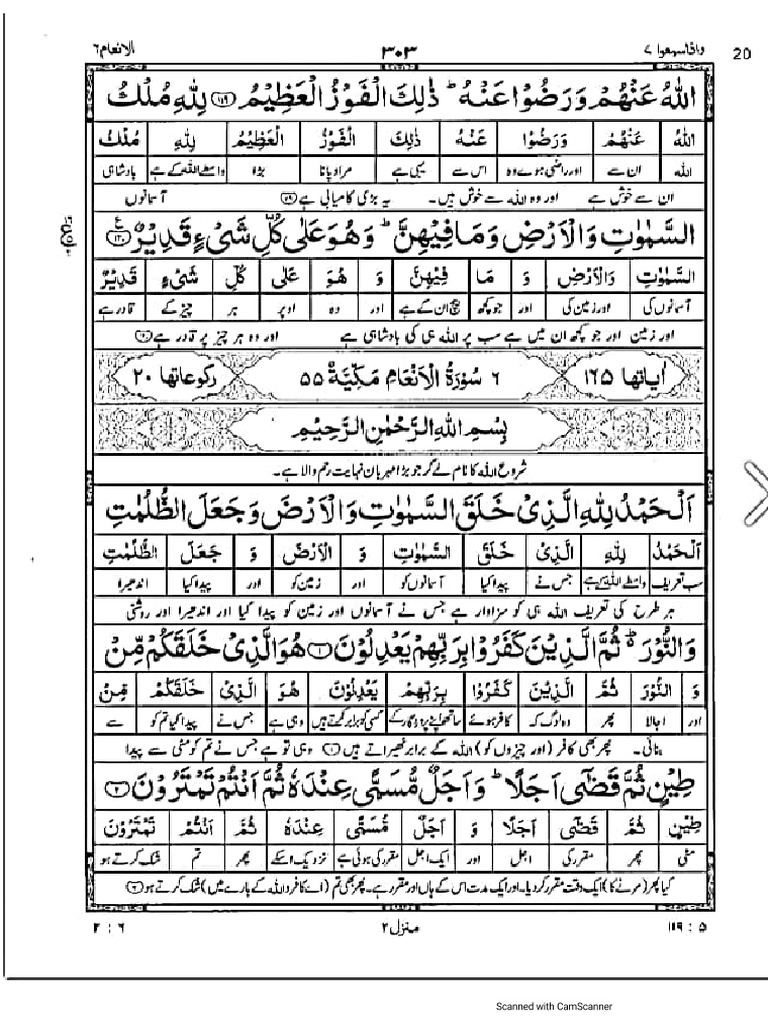 واذاسمعوا ۷ ۳۰۳ الانعام ۶
20
اللّٰهُ عَنْهُمْ وَرَضُوْا عَنْهُ ؕ ذٰلِكَ الْفَوْزُ الْعَظِيْمُ ۝۱۱۹ لِلّٰهِ مُلْكُ
اللّٰهُ عَنْهُمْ وَرَضُوْا عَنْهُ ذٰلِكَ الْفَوْزُ الْعَظِيْمُ لِلّٰهِ مُلْكُ
اللہ ان سے اور راضی ہوے وہ اس سے یہی ہے مراد پانا بڑا واسطے اللہ کے ہے بادشاہی
ان سے خوش ہے اور وہ اللہ سے خوش ہیں۔ یہ بڑی کامیابی ہے آسمانوں
السَّمٰوٰتِ وَالْاَرْضِ وَمَا فِيْهِنَّ ؕ وَهُوَ عَلٰى كُلِّ شَىْءٍ قَدِيْرٌ ۝۱۲۰
السَّمٰوٰتِ وَالْاَرْضِ وَ مَا فِيْهِنَّ وَ هُوَ عَلٰى كُلِّ شَىْءٍ قَدِيْرٌ
آسمانوں کی اور زمین کی اور جو کچھ بیچ ان کے ہے اور وہ اوپر ہر چیز کے قادر ہے
اور زمین اور جو کچھ ان میں ہے سب پر اللہ ہی کی بادشاہی ہے اور وہ ہر چیز پر قادر ہے
اٰیاتها ۱۶۵ ۶ سُوْرَةُ الْاَنْعَامِ مَكِّيَّةٌ ۵۵ ركوعاتها ۲۰
بِسْمِ اللّٰهِ الرَّحْمٰنِ الرَّحِيْمِ
شروع اللہ کا نام لے کر جو بڑا مہربان نہایت رحم والا ہے۔
اَلْحَمْدُ لِلّٰهِ الَّذِىْ خَلَقَ السَّمٰوٰتِ وَالْاَرْضَ وَجَعَلَ الظُّلُمٰتِ
اَلْحَمْدُ لِلّٰهِ الَّذِىْ خَلَقَ السَّمٰوٰتِ وَ الْاَرْضَ وَ جَعَلَ الظُّلُمٰتِ
سب تعریف واسطے اللہ کے ہے جس نے پیدا کیا آسمانوں کو اور زمین کو اور پیدا کیا اندھیرا
ہر طرح کی تعریف اللہ ہی کو سزاوار ہے جس نے آسمانوں اور زمین کو پیدا کیا اور اندھیرا اور روشنی
وَالنُّوْرَ ؕ ثُمَّ الَّذِيْنَ كَفَرُوْا بِرَبِّهِمْ يَعْدِلُوْنَ ۝۱ هُوَ الَّذِىْ خَلَقَكُمْ مِّنْ
وَ النُّوْرَ ثُمَّ الَّذِيْنَ كَفَرُوْا بِرَبِّهِمْ يَعْدِلُوْنَ هُوَ الَّذِىْ خَلَقَكُمْ مِّنْ
اور اجالا پھر وہ لوگ کہ کافر ہوئے ساتھ اپنے پروردگار کے کسی کو برابر کرتے ہیں وہی ہے جس نے پیدا کیا تم کو سے
بنائی۔ پھر بھی کافر (اور چیزوں کو) اللہ کے برابر ٹھیراتے ہیں ۝۱ وہی تو ہے جس نے تم کو مٹی سے پیدا
طِيْنٍ ثُمَّ قَضٰۤى اَجَلًا ؕ وَاَجَلٌ مُّسَمًّى عِنْدَهٗ ثُمَّ اَنْتُمْ تَمْتَرُوْنَ ۝۲
طِيْنٍ ثُمَّ قَضٰۤى اَجَلًا وَ اَجَلٌ مُّسَمًّى عِنْدَهٗ ثُمَّ اَنْتُمْ تَمْتَرُوْنَ
مٹی پھر مقرر کی اجل اور ایک اجل مقرر کی ہوئی ہے نزدیک اسکے پھر تم شک کرتے ہو
کیا پھر (مرنے کا) ایک وقت مقرر کر دیا۔ اور ایک مدت اس کے ہاں اور مقرر ہے۔ پھر بھی تم (اے کافرو اللہ کے بارے میں) شک کرتے ہو ۝۲
۵ : ۱۱۹ منزل ۲ ۶ : ۲
Scanned with CamScanner